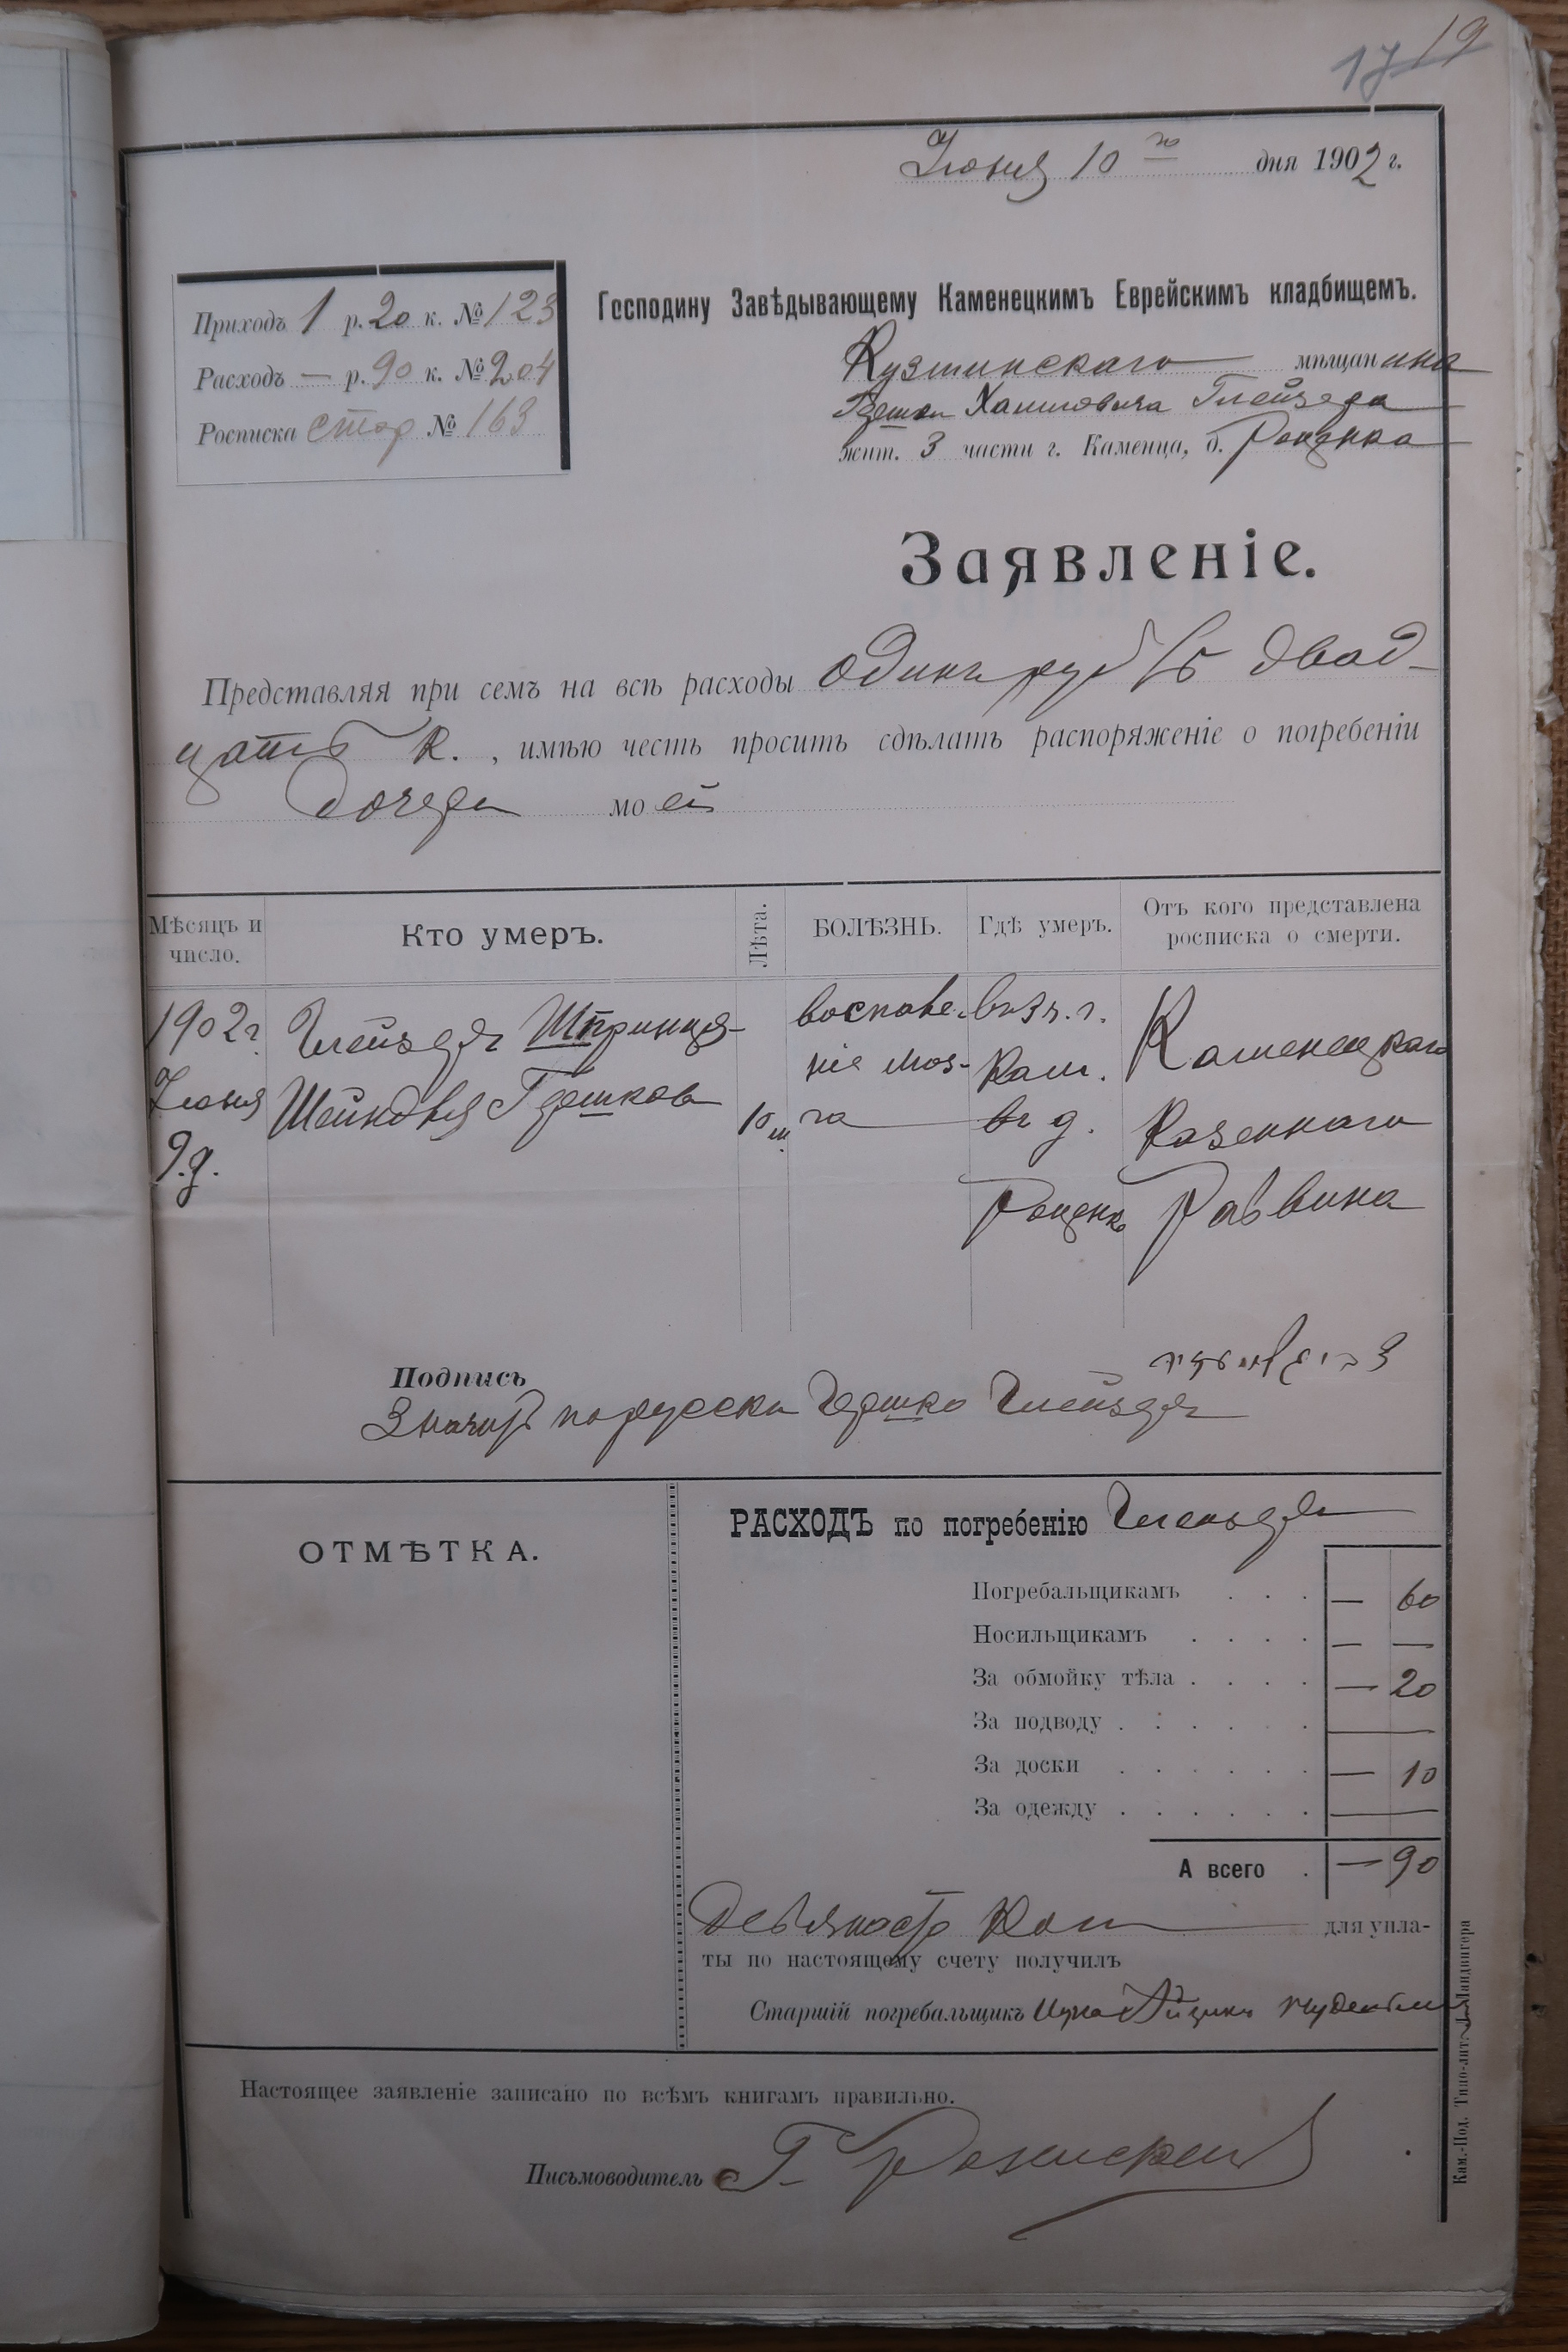 17 19
Июня 10 го дня 1902 г.
Приходъ 1 р. 20 к. № 123
Расходъ — р. 90 к. № 204
Росписка стор № 163
Господину Завѣдывающему Каменецкимъ Еврейскимъ кладбищемъ.
Кузминскаго мѣщанина
Гершки Хаимовича Глейзера
жит. 3 части г. Каменца, д. Роценка
Заявленіе.
Представляя при семъ на всѣ расходы одинъ рубль двад-
цать к., имѣю честь просить сдѣлать распоряженіе о погребеніи
дочери моей
Мѣсяцъ и число.
Кто умеръ.
Лѣта.
БОЛѢЗНЬ.
Гдѣ умеръ.
Отъ кого представлена росписка о смерти.
1902 г.
Июня
9 д.
Глейзеръ Шпринця-
Шейндля Гершков
10 м.
воспале-
ніе моз-
га
въ 3 ч. г.
Кам.
въ д.
Роценк
Каменецкаго
Казеннаго
Раввина
Подпись
Значитъ по русски Гершко Глейзеръ
ОТМѢТКА.
РАСХОДЪ по погребенію Глейзеръ
Погребальщикамъ . . . — 60
Носильщикамъ . . . . — —
За обмойку тѣла . . . . — 20
За подводу . . . . . . —
За доски . . . . . . — 10
За одежду . . . . . . —
А всего . — 90
Девяносто коп для упла-
ты по настоящему счету получилъ
Старшій погребальщикъ Ицко Айзикъ
Настоящее заявленіе записано по всѣмъ книгамъ правильно.
Письмоводитель
Кам.-Под. Типо-лит. Ландвигера